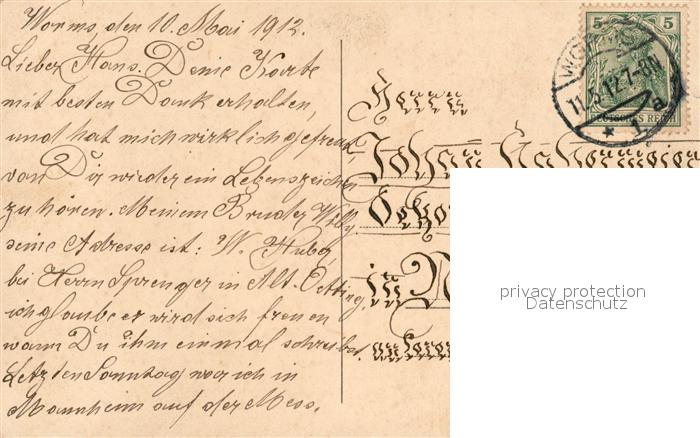 Worms, den 10. Mai 1912.
Lieber Hans. Deine Karte
mit besten Dank erhalten,
und hat mich wirklich gefreut
von Dir wieder ein Lebenszeichen
zu hören. Meinem Bruder Willy
seine Adresse ist: W. Huber
bei Herrn Sprenger in Alt-Oetting,
ich glaube er wird sich freuen
wann Du ihm einmal schreibst.
Letzten Sonntag war ich in
Mannheim auf der Mess.
5 5
DEUTSCHES REICH
WORMS
11.5.12.7-8N
* 1 a
Herrn
Johan
in
privacy protection
Datenschutz